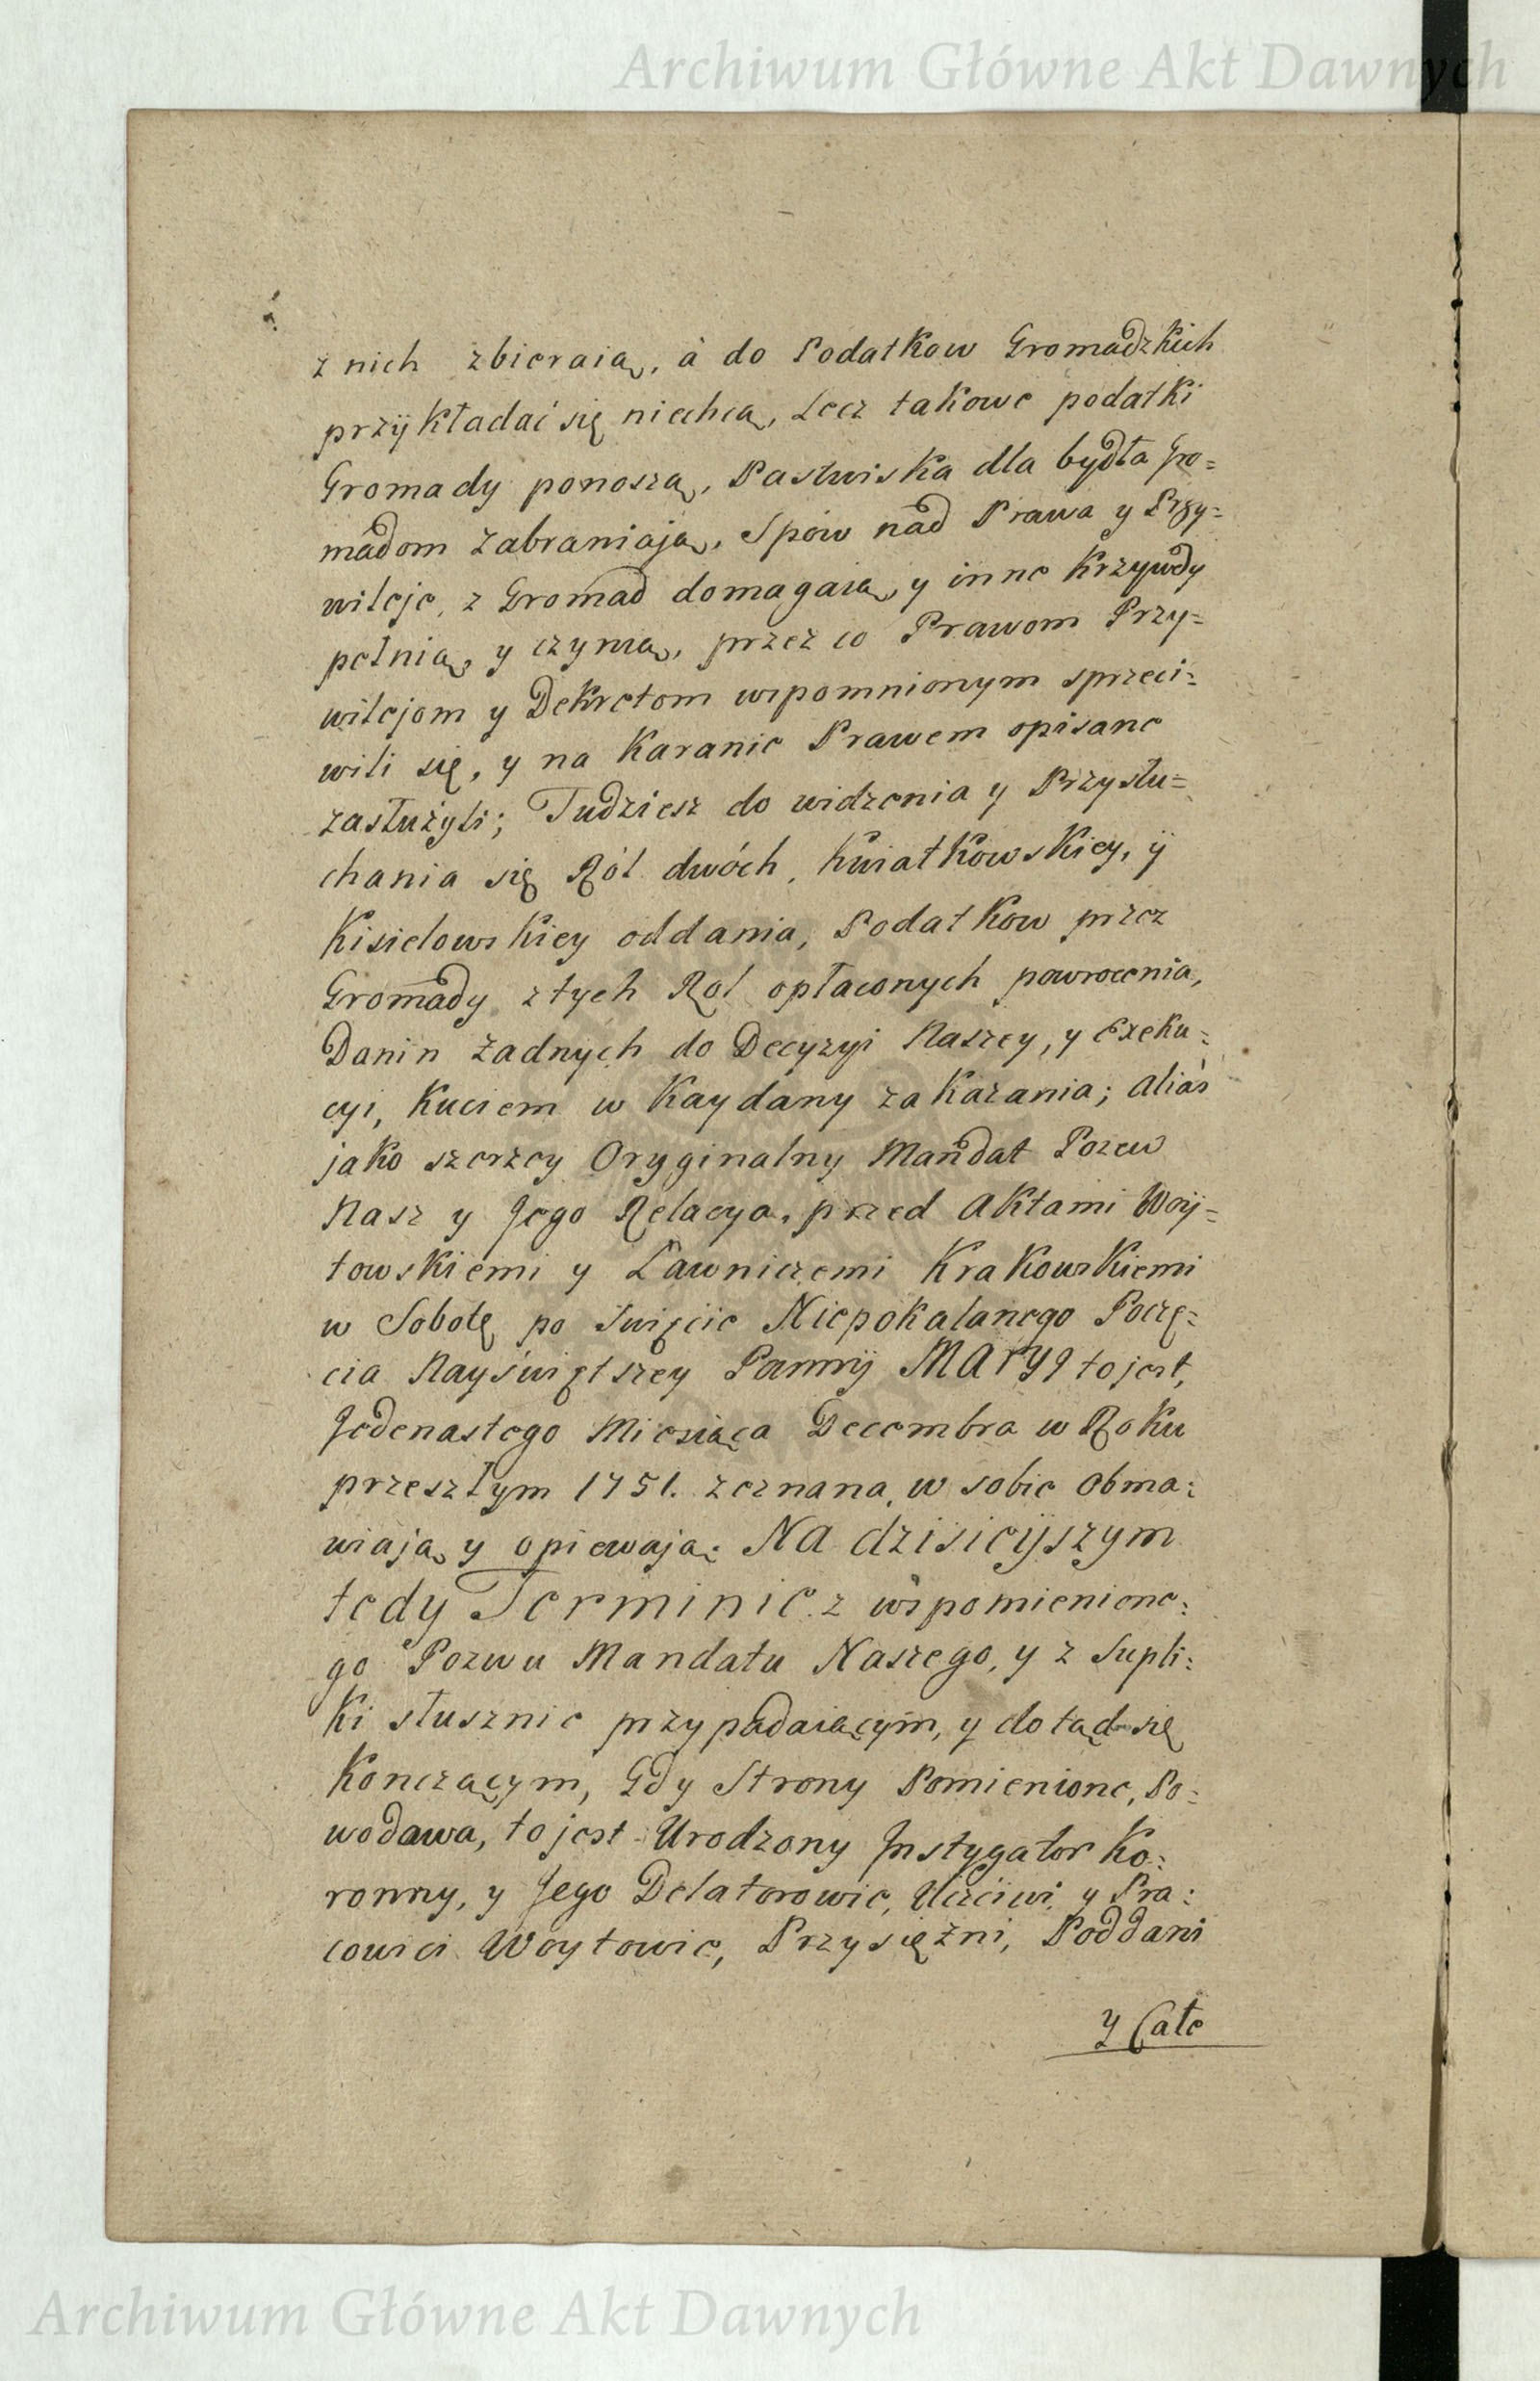 Archiwum Główne Akt Dawnych
z nich zbieraią, à do Podatkow Gromadzkich
przÿkładać się niechcą, Lecz takowe podatki
Gromady ponoszą, Pastwiska dla bydła Gro=
madom zabraniają, Spów nad Prawa y Przy=
wileje, z Gromad domagaią, y inne krzywdy
pełnią, y czynią, przez co Prawom Przy=
wilejom y Dekretom wspomnionym sprzeci=
wili się, y na karanie Prawem opisane
zasłużyli; Tudziesz do widzenia y Przysłu=
chania się Ról dwóch, Kwiatkowskiey, ÿ
Kisielowskiey oddania, Podatkow przez
Gromady z tych Rol opłaconych powrocenia,
Danin żadnych do Decyzyi Naszey, y Exeku=
cyi, kuciem w Kaydany zakazania; alias
jako szerzey Oryginalny Mandat Pozew
Nasz y Jego Relacya, przed Aktami Woÿ=
towskiemi y Ławniczemi Krakowskiemi
w Sobotę po Swięcie Niepokalanego Poczę=
cia Nayświętszey Pannÿ MARYI to jest,
Jedenastego Miesiąca Decembra w Roku
przeszłym 1751. zeznana, w sobie obma=
wiają y opiewają: NA dzisieÿszym
tedy Terminie z wspomienione=
go Pozwu Mandatu Naszego, y z Supli=
ki słusznie przypadaiącym, y dotąd się
konczącym, Gdy Strony Pomienione, Po=
wodawa, to jest Urodzony Instygator Ko=
ronny, y Jego Delatorowie, Uczciwi y Pra=
cowici Woytowie, Przysiężni, Poddani
y Całe
Archiwum Główne Akt Dawnych